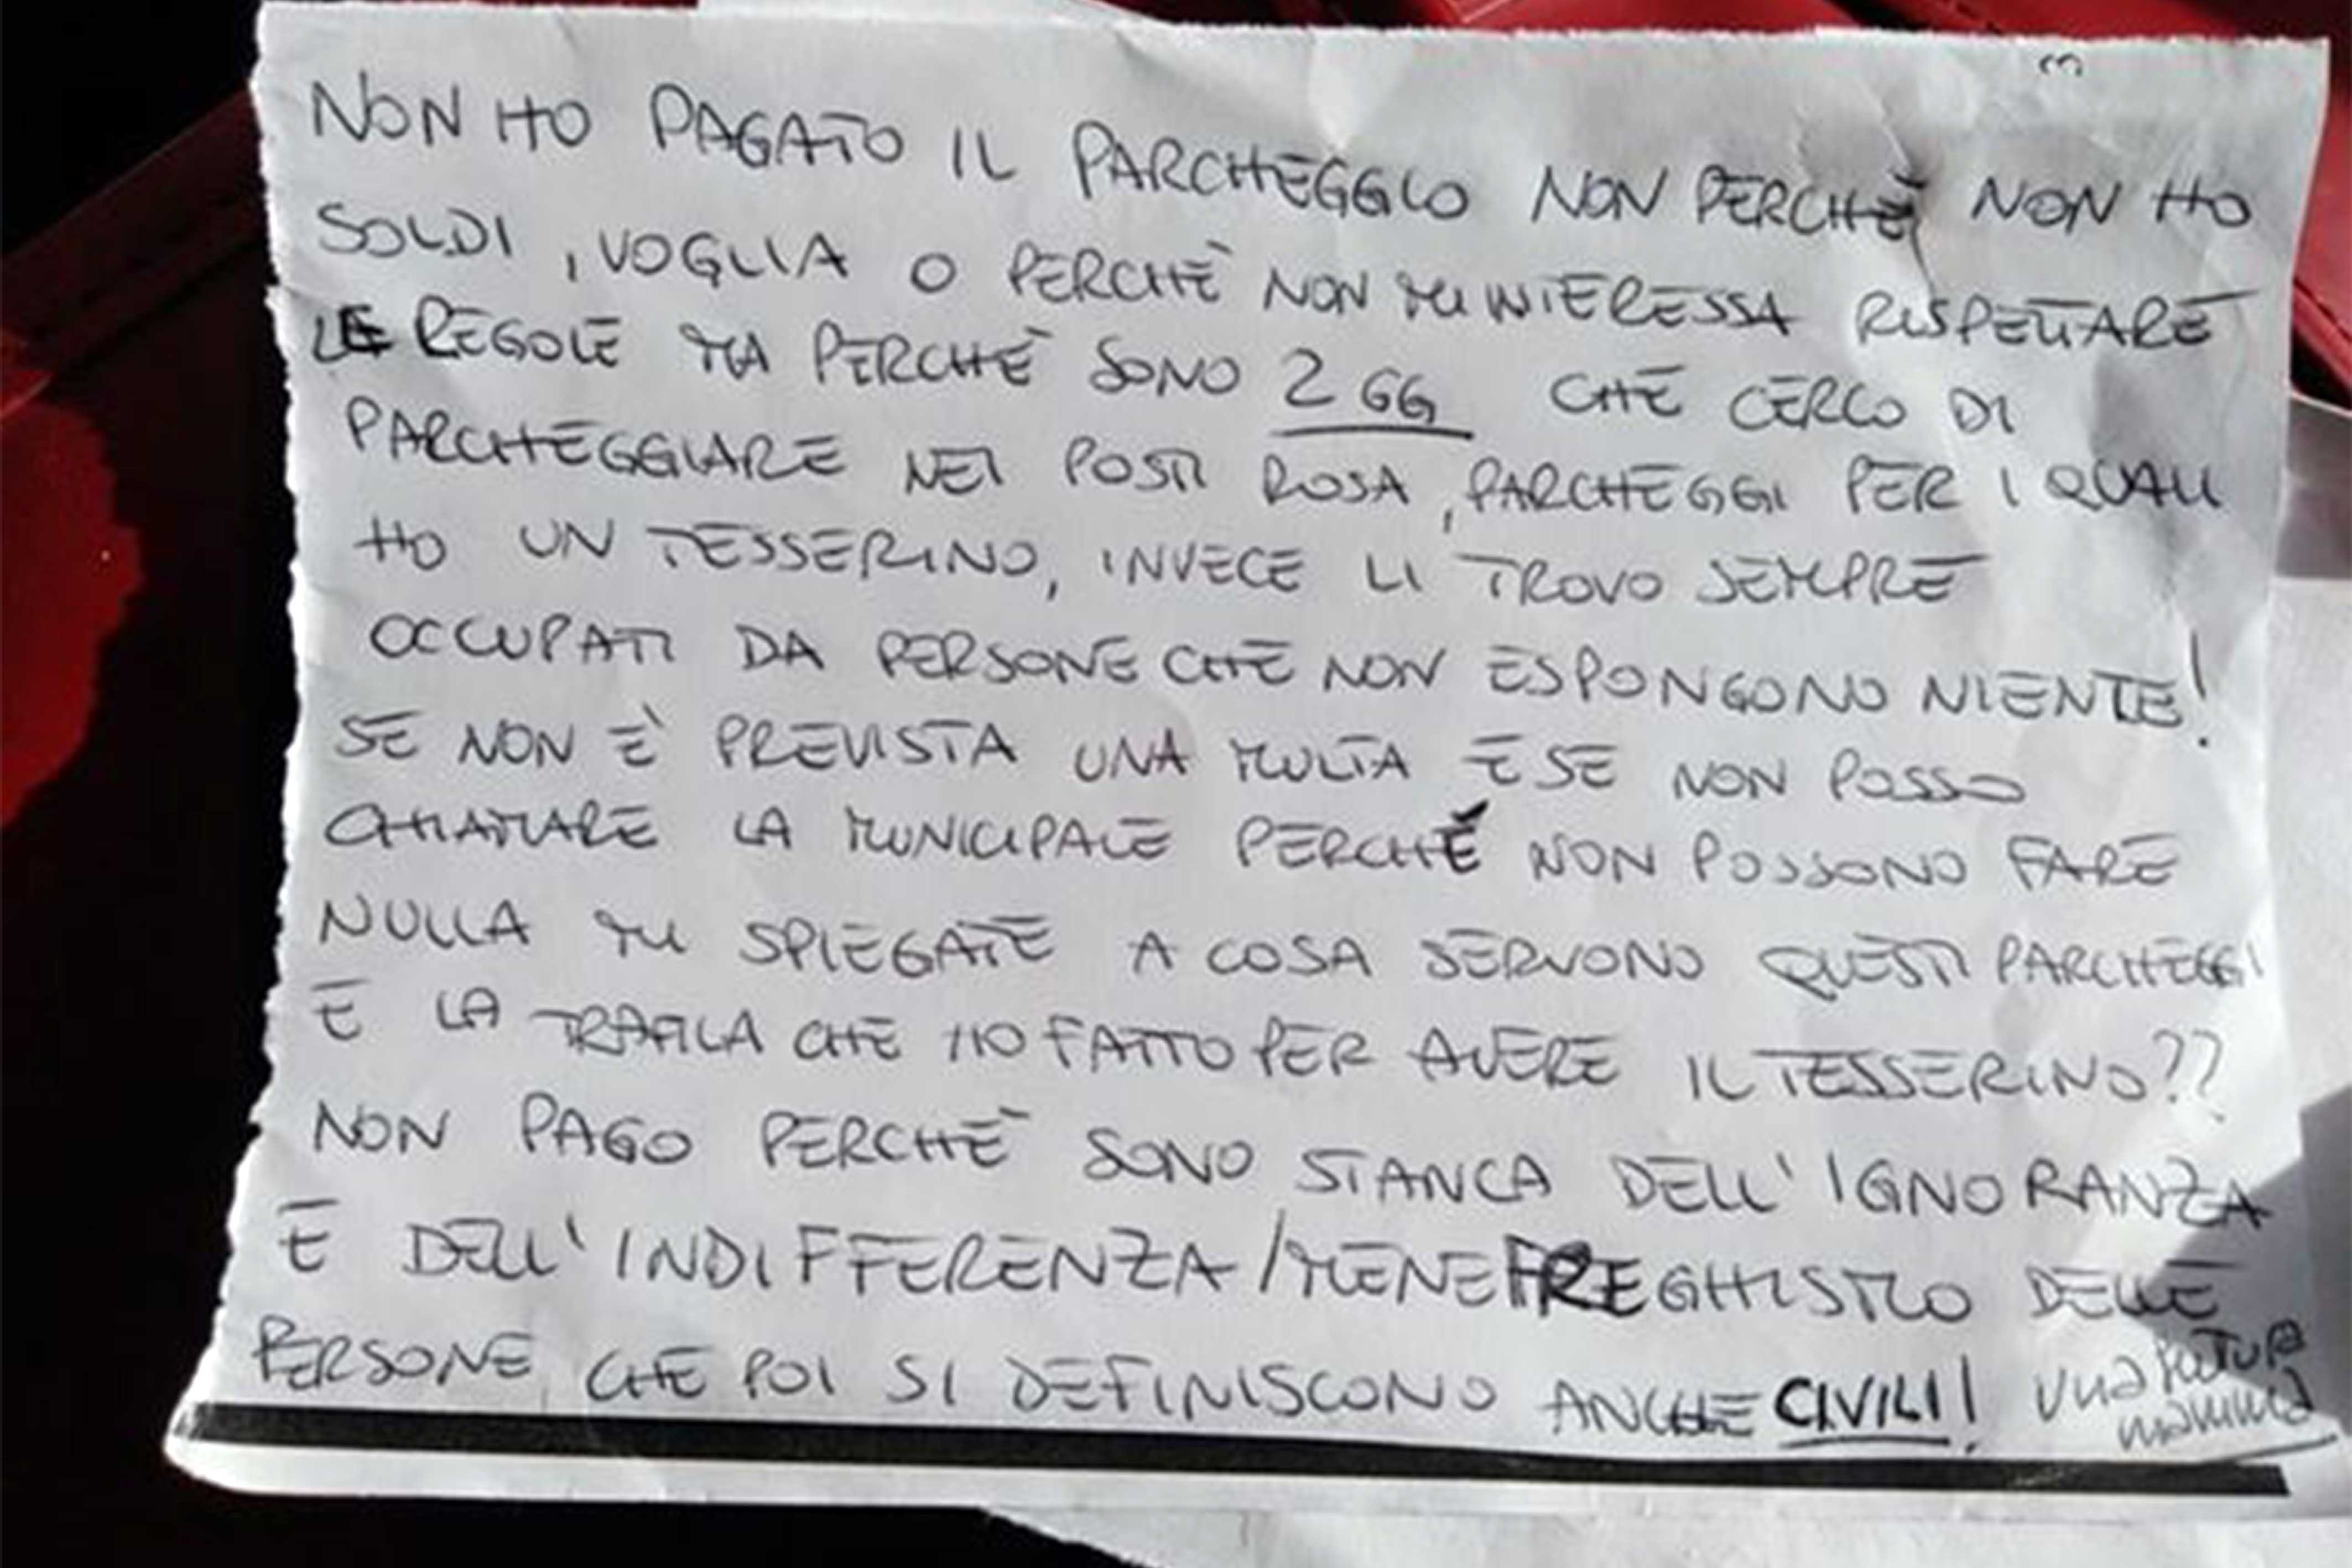 3
NON HO PAGATO IL PARCHEGGIO NON PERCHÈ NON HO
SOLDI, VOGLIA O PERCHÈ NON MI INTERESSA RISPETTARE
LE REGOLE MA PERCHÈ SONO 2 GG CHE CERCO DI
PARCHEGGIARE NEI POSTI ROSA, PARCHEGGI PER I QUALI
HO UN TESSERINO, INVECE LI TROVO SEMPRE
OCCUPATI DA PERSONE CHE NON ESPONGONO NIENTE!
SE NON È PREVISTA UNA MULTA E SE NON POSSO
CHIAMARE LA MUNICIPALE PERCHÉ NON POSSONO FARE
NULLA MI SPIEGATE A COSA SERVONO QUESTI PARCHEGGI
E LA TRAFILA CHE HO FATTO PER AVERE IL TESSERINO??
NON PAGO PERCHÈ SONO STANCA DELL'IGNORANZA
E DELL'INDIFFERENZA/MENEFREGHISMO DELLE
PERSONE, CHE POI SI DEFINISCONO ANCHE CIVILI!
una futura
mamma